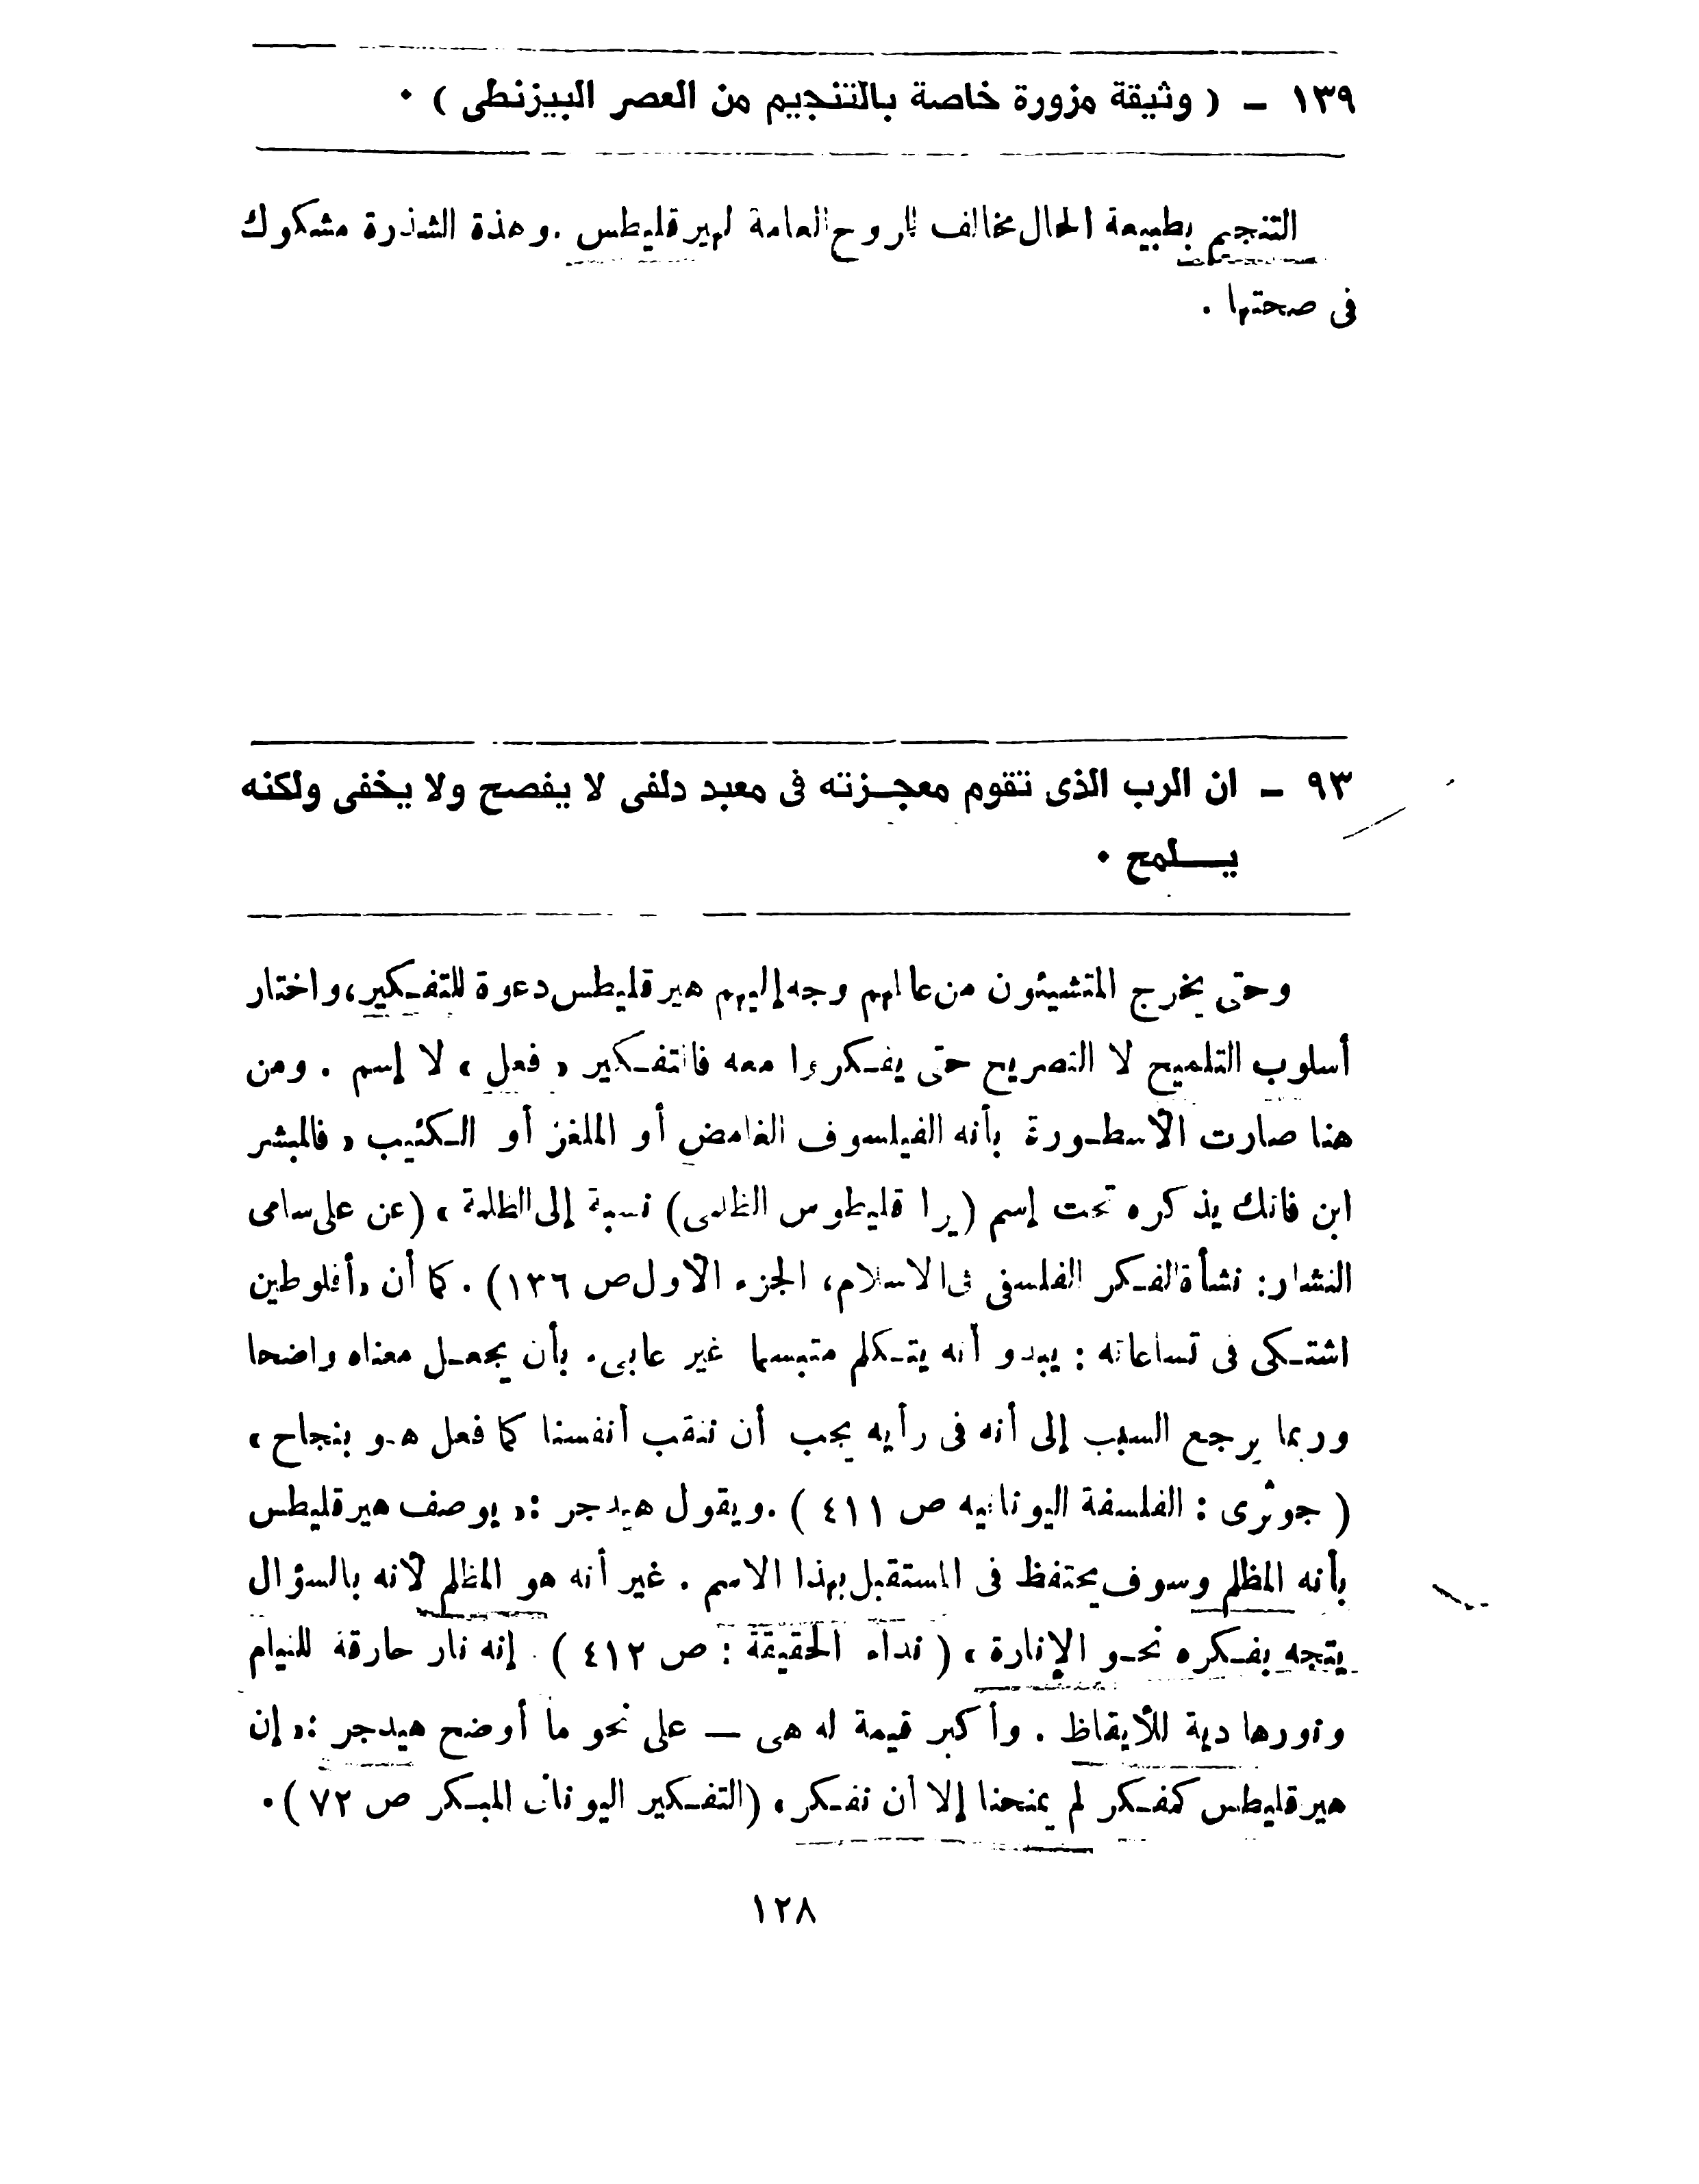 ١٣٩ – ( وثيقة مزورة خاصة بالتنجيم من العصر البيزنطى ) ٠
التنجيم بطبيعة الحال مخالف للروح العامة لهيرقليطس . وهذة الشذرة مشكوك
فى صحتها .
٩٣ – ان الرب الذى تقوم معجـزته فى معبد دلفى لا يفصح ولا يخفى ولكنه
يـــلمح ٠
وحتى يخرج المتشيئون من عالمهم وجه إليهم هيرقليطس دعوة للتفـكير، واختار
أسلوب التلميح لا التصريح حتى يفـكروا معه فالتفـكير « فعل » لا إسم . ومن
هنا صارت الأسطـورة بأنه الفيلسوف الغامض أو الملغز أو الـكئيب « فالمبشر
ابن فاتك يذكره تحت إسم (يرا قليطوس الظلمى) نسبة إلى الظلمة » (عن على سامى
النشار: نشأة الفـكر الفلسفى فى الاسلام، الجزء الأول ص ١٣٦) . كما أن «أفلوطين
اشتـكى فى تساعاته : يبدو أنه يتـكلم متبسما غير عابىء بأن يجعـل معناه واضحا
وربما يرجع السبب إلى أنه فى رأيه يجب أن ننقب أنفسنا كما فعل هـو بنجاح »
( جوثرى : الفلسفة اليونانيه ص ٤١١ ) . ويقول هيدجر :« يوصف هيرقليطس
بأنه المظلم وسوف يحتفظ فى المستقبل بهذا الاسم . غير أنه هو المظلم لأنه بالسؤال
يتجه بفـكره نحـو الإنارة » ( نداء الحقيقة : ص ٤١٢ ) . إنه نار حارقة للنيام
ونورها دية للأيقاظ . وأكبر قيمة له هى — على نحو ما أوضح هيدجر :« إن
هيرقليطس كمفـكر لم يمنحنا إلا أن نفـكر » (التفـكير اليونانى المبـكر ص ٧٢ ) ٠
١٢٨